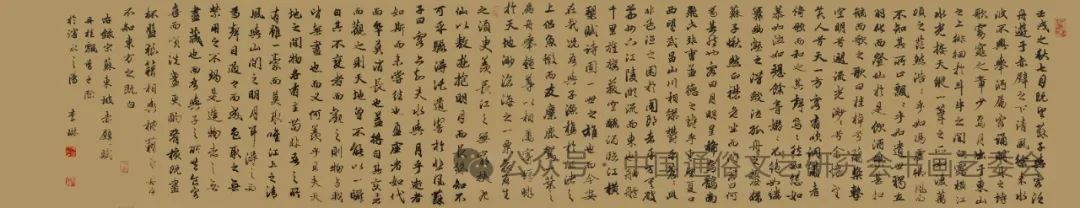 壬戌之秋七月既望蘇子與客泛
舟遊于赤壁之下清風徐來水
波不興舉酒屬客誦明月之詩
歌窈窕之章少焉月出于東山
之上徘徊於斗牛之間白露橫江
水光接天縱一葦之所如凌萬頃
之茫然浩浩乎如馮虛御風而
不知其所止飄飄乎如遺世獨立
羽化而登仙於是飲酒樂甚扣
舷而歌之歌曰桂棹兮蘭槳擊
空明兮泝流光渺渺兮予懷望
美人兮天一方客有吹洞簫者
倚歌而和之其聲嗚嗚然如怨如
慕如泣如訴餘音嫋嫋不絕如縷
舞幽壑之潛蛟泣孤舟之嫠婦
蘇子愀然正襟危坐而問客曰何
為其然也客曰月明星稀烏鵲南
飛此非曹孟德之詩乎
西望夏口東望武昌山川相繆鬱乎
蒼蒼此非孟德之困於周郎者乎方其破
荊州下江陵順流而東也舳艫
千里旌旗蔽空釃酒臨江橫
槊賦詩固一世之雄也而今安
在哉況吾與子漁樵於江渚之
上侶魚蝦而友麋鹿駕一葉之
扁舟舉匏樽以相屬寄蜉蝣
於天地渺滄海之一粟哀吾生
之須臾羨長江之無窮挾飛
仙以遨遊抱明月而長終知不
可乎驟得託遺響於悲風蘇
子曰客亦知夫水與月乎逝者
如斯而未嘗往也盈虛者如代
而卒莫消長也蓋將自其變者
而觀之則天地曾不能以一瞬
自其不變者而觀之則物與我
皆無盡也而又何羨乎且夫天
地之間物各有主苟非吾之所
有雖一毫而莫取唯江上之清
風與山間之明月耳得之而
為聲目遇之而成色取之無
禁用之不竭是造物者之無
盡藏也而吾與子之所共食客
喜而笑洗盞更酌肴核既盡
杯盤狼籍相與枕藉乎舟中
不知東方之既白
右錄宋蘇東坡赤壁賦
丹桂飄香之際
李
公众号·中国通俗文艺研究会书画艺委会